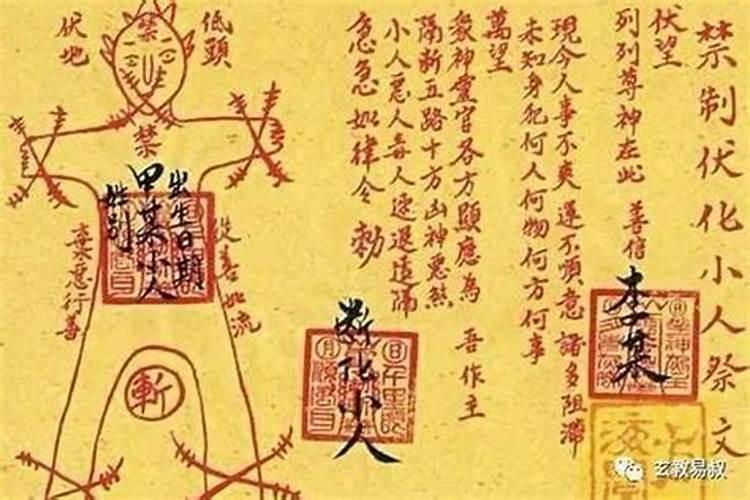 禁制伏化小人祭文
伏望
列列尊神在此 善信 李某
現今人事不爽運不順意諸多阻滯
未知身犯何人何物何方何事
萬望
眾神靈官各方顯應為 吾作主
隔斷五路十方凶神惡煞
小人惡人毒人速退遠隔
急急如律令 勅
斷化小人
低頭
禁
伏地
禁
出生日期
甲某小人
從善如流
棄惡行善
斬
玄教易叔